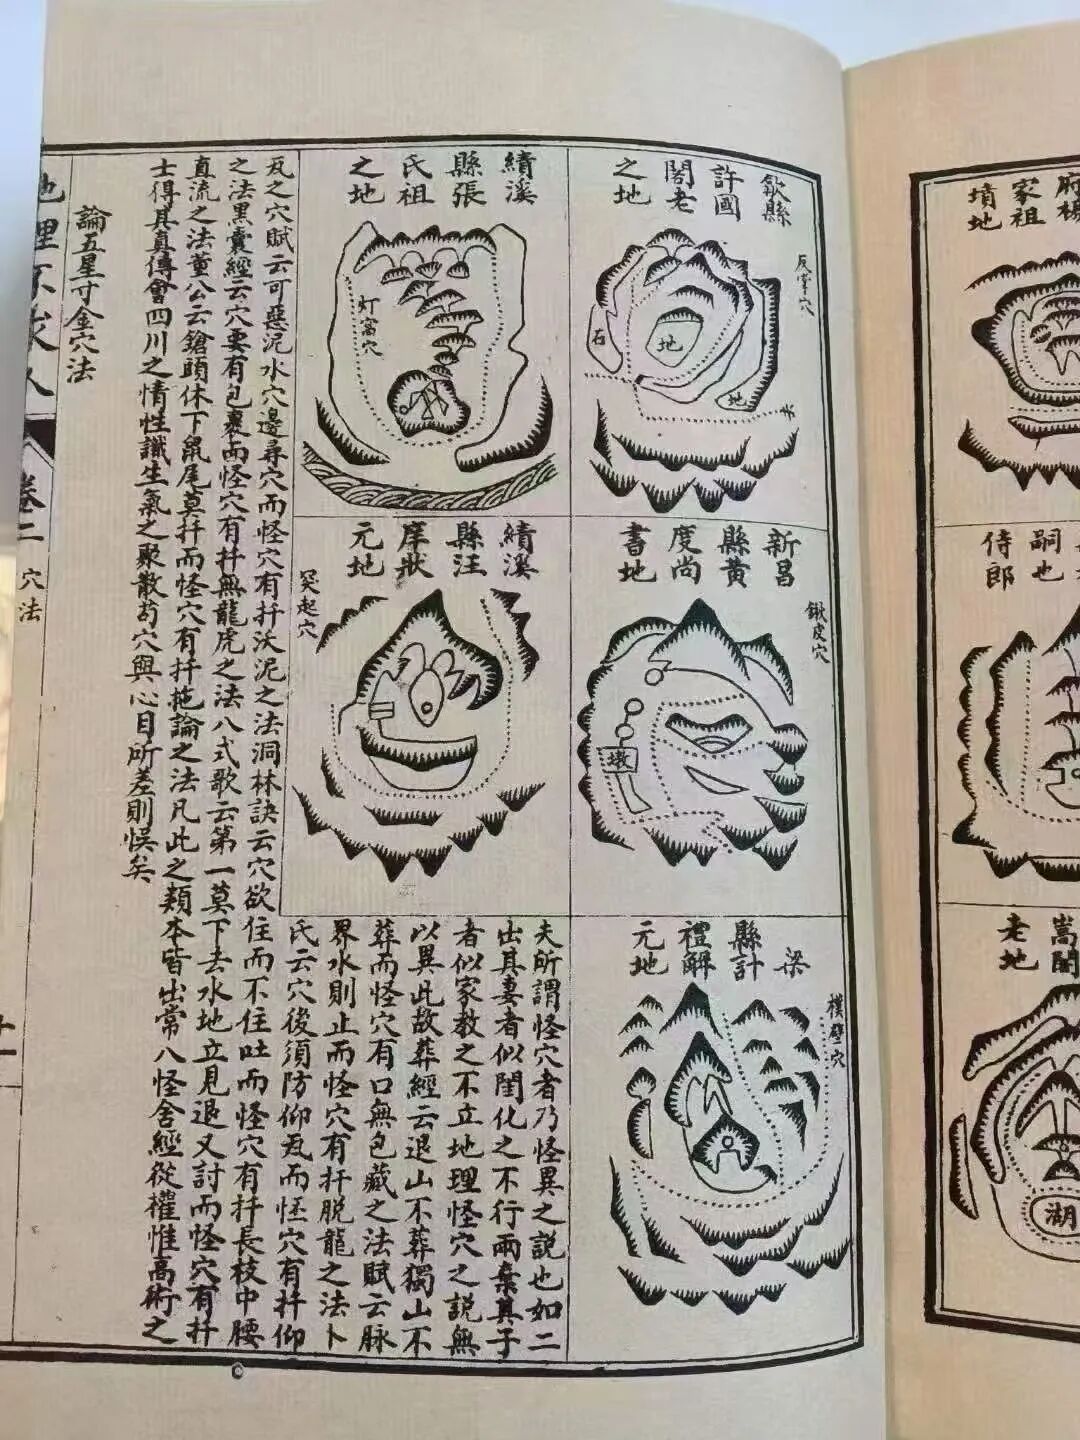 府楊
家祖
墳地
嗣也
侍郎
嵩閣
老地
湖
歙縣
許國
閣老
之地
反掌穴
石
地
地
水
績溪
縣張
氏祖
之地
灯窩穴
新昌
縣黃
度尚
書地
鍬皮穴
墩
績溪
縣汪
庠狀
元地
突起穴
梁
縣計
禮解
元地
撲壁穴
夫所謂怪穴者乃怪異之説也如二
出其妻者似閨化之不行兩棄其子
者似家教之不立地理怪穴之説無
以異此故葬經云退山不葬獨山不
葬而怪穴有口無包藏之法賦云脉
界水則止而怪穴有扦脱龍之法卜
氏云穴後須防仰瓦而怪穴有扦仰
瓦之穴賦云可惡泥水穴邊尋穴而怪穴有扦沃泥之法洞林訣云穴欲住而不住吐而怪穴有扦長枝中腰
之法黑囊經云穴要有包裹而怪穴有扦無龍虎之法八式歌云第一莫下去水地立見退又討而怪穴有扦
直流之法董公云鎗頭休下鼠尾莫扦而怪穴有扦拖論之法凡此之類本皆出常八怪舍經從權惟高術之
士得其真傳會四川之情性識生氣之聚散苟穴與心目所差則悞矣
論五星寸金穴法
地理不求人
卷二 穴法